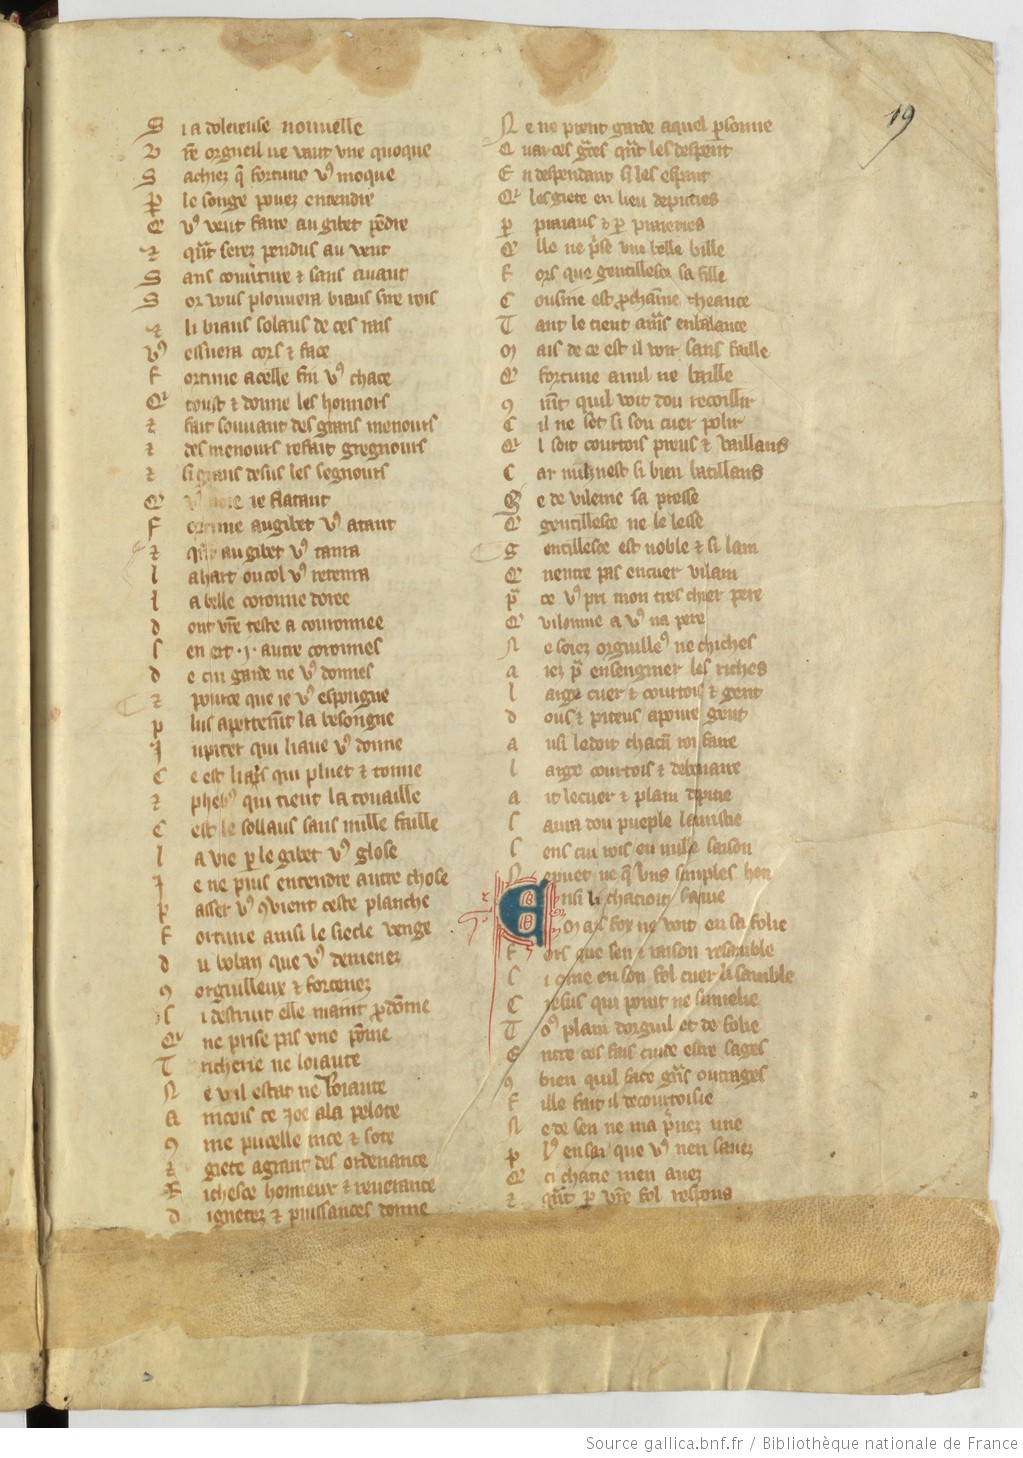 19
S i a dolereuse nouuelle
V re orgueil ne vaut vne quoque
S achiez q̃ fortune vꝰ moque
P le songe pouez entendre
E vꝰ veut faire au gibet pẽdre
⁊ qñt serez pendus au vent
S ans couuẽture ⁊ sans auuant
S or vous plouuera biaus sire rois
⁊ li biaus solaus de ces rais
Vꝰ essuera cors ⁊ face
F ortune a celle fin vꝰ chace
Q toust ⁊ donne les honnors
⁊ fait souuant des grans menours
⁊ des menours refait gregnours
⁊ si grans desus les segnours
Q ie flatant
F ortune au gibet vꝰ atant
⁊ qñt au gibet vꝰ tanra
l a hart ou col vꝰ retenra
l a belle coronne doree
d ont vr̃e teste a couronnee
s en ert .i. autre coronnes
d e cui garde ne vꝰ donnes
⁊ pource que ie vꝰ espongne
p lus apertemẽt la besongne
J upiter qui liaue vꝰ donne
C e est li airs qui pluet ⁊ tonne
⁊ phebꝰ qui tient la touaille
C est le sollaus sans mille faille
l a vie p̱ le gibet vꝰ glose
J e ne puis entendre autre chose
p asser vꝰ ꝯuient ceste planche
F ortune ainsi le siecle venge
d u boban que vꝰ demenez
ꝯ orguilleux ⁊ forcenez
s i destruit elle maint p̱dõme
Q ne prise pas vne põme
T richerie ne loiaute
N e vil estat ne roiaute
A nicois ce ioe a la pelote
ꝯ me pucelle nice ⁊ sote
⁊ giete a grant des ordenance
R ichesce honneur ⁊ reuerance
D ignetez ⁊ puissances donne
N e ne prent garde a quel p̱sonne
C uar ces gr̃ces qñt les despent
E n despendant si les espant
Q les giete en lieu de puties
p praiaus ⁊ p̱ praieries
E lle ne p̃se vne belle bille
F ors que gentillesce sa fille
C ousine est p̱chaine cheance
T ant le tient amĩs en balance
M ais de ce est il voir sans faille
Q fortune a nul ne baille
ꝯ mẽt quil voit dou recoillir
C il ne set si son cuer polir
Q l soit courtois preus ⁊ vaillans
C ar nulz nest si bien bataillans
S e de vilenie sa presse
Q gentillesce ne le lesse
g entillesce est noble ⁊ si lain
Q nentre pas en cuer vilain
p̃ ce vꝰ pri mon tres chier pere
Q vilonnie a vꝰ na pere
N e soiez orguilleꝰ ne chiches
a iez p̃ ensengnier les riches
l arge cuer ⁊ courtois ⁊ gent
d ous ⁊ piteus a poure gent
a nsi le doit chacũ roi faire
l arge courtois ⁊ debonaire
a it le cuer ⁊ plain de pitie
s aura dou pueple lamistie
s ens cui rois en nulle saison
N e puet ne q̃ vns simples hon
E nsi li chatioit sa fille
Mais fox ne voit en sa folie
F ors que sen ⁊ raison resamble
s i cõme en son fol cuer li samble
C resus qui point ne sumelie
T oꝰ plain dorguil et de folie
E ntre ces fais cuide estre sages
ꝯ bien quil face grãs outrages
F ille fait il de courtoisie
N e de sen ne ma p̃nez mie
p lꝰ en sai que vꝰ nen sauez
Q ci chatie men auez
⁊ qñt p̱ vr̃e fol respons
Source gallica.bnf.fr / Bibliothèque nationale de France